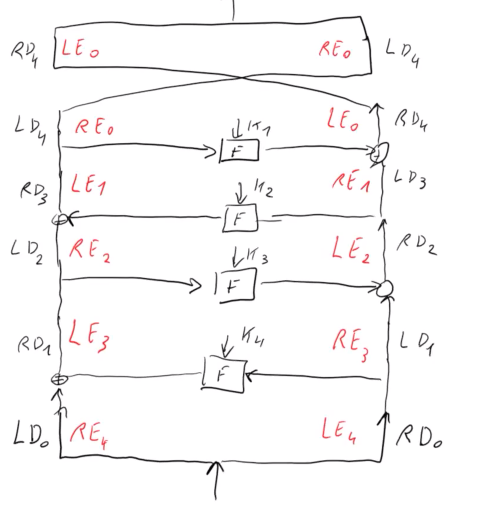 RD₄ LE₀ RE₀ LD₄
LD₄ RE₀ K1 LE₀ RD₄
F
RD₃ LE1 K₂ RE1 LD₃
F
LD₂ RE₂ K₃ LE₂ RD₂
F
RD₁ LE₃ K₄ RE₃ LD₁
F
LD₀ RE₄ LE₄ RD₀